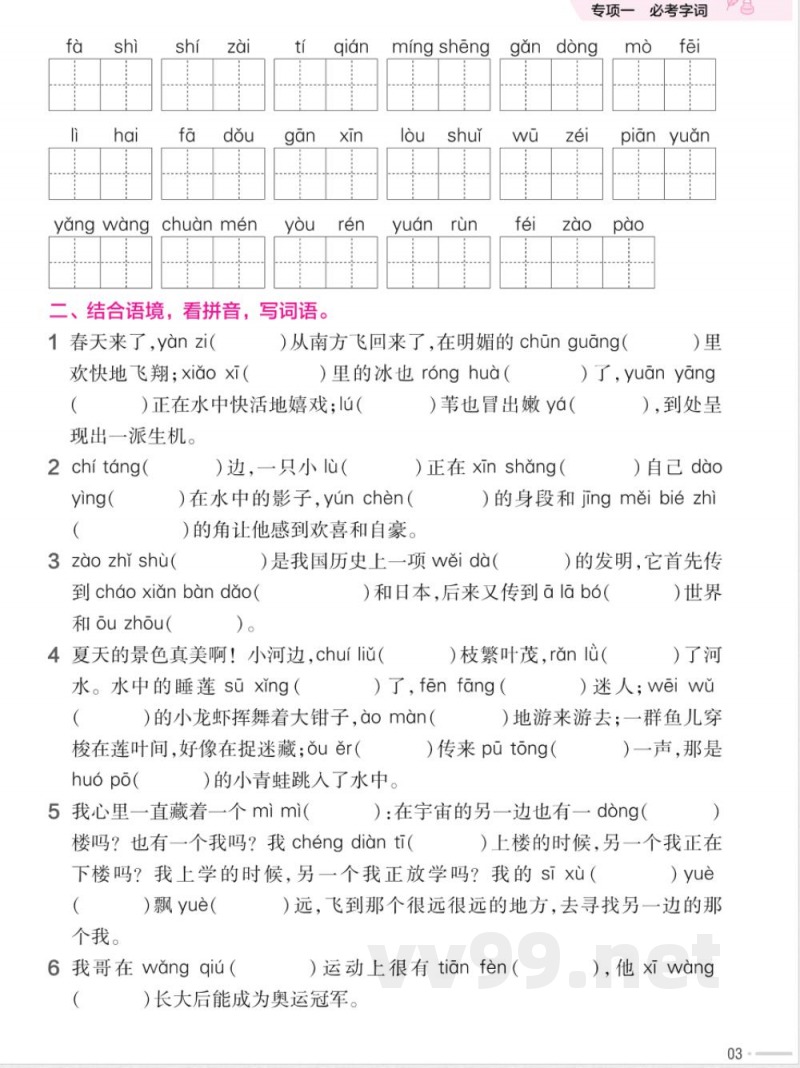 专项一 必考字词
fà shì shí zài tí qián míng shēng gǎn dòng mò fēi
lì hai fā dǒu gān xīn lòu shuǐ wū zéi piān yuǎn
yǎng wàng chuàn mén yòu rén yuán rùn féi zào pào
二、结合语境，看拼音，写词语。
1 春天来了，yàn zi( )从南方飞回来了，在明媚的 chūn guāng( )里
欢快地飞翔；xiǎo xī( )里的冰也 róng huà( )了，yuān yāng
( )正在水中快活地嬉戏；lú( )苇也冒出嫩 yá( )，到处呈
现出一派生机。
2 chí táng( )边，一只小 lù( )正在 xīn shǎng( )自己 dào
yìng( )在水中的影子，yún chèn( )的身段和 jīng měi bié zhì
( )的角让他感到欢喜和自豪。
3 zào zhǐ shù( )是我国历史上一项 wěi dà( )的发明，它首先传
到 cháo xiǎn bàn dǎo( )和日本，后来又传到 ā lā bó( )世界
和 ōu zhōu( )。
4 夏天的景色真美啊！小河边，chuí liǔ( )枝繁叶茂，rǎn lǜ( )了河
水。水中的睡莲 sū xǐng( )了，fēn fāng( )迷人；wēi wǔ
( )的小龙虾挥舞着大钳子，ào màn( )地游来游去；一群鱼儿穿
梭在莲叶间，好像在捉迷藏；ǒu ěr( )传来 pū tōng( )一声，那是
huó pō( )的小青蛙跳入了水中。
5 我心里一直藏着一个 mì mì( )：在宇宙的另一边也有一 dòng( )
楼吗？也有一个我吗？我 chéng diàn tī( )上楼的时候，另一个我正在
下楼吗？我上学的时候，另一个我正放学吗？我的 sī xù( )yuè
( )飘 yuè( )远，飞到那个很远很远的地方，去寻找另一边的那
个我。
6 我哥在 wǎng qiú( )运动上很有 tiān fèn( )，他 xī wàng
( )长大后能成为奥运冠军。
vv99.net
03